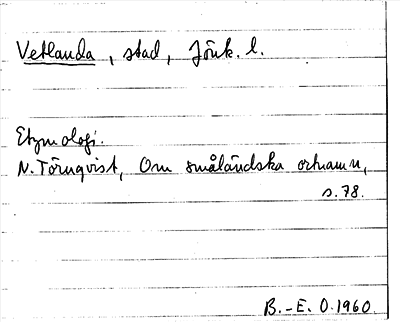 Vetlanda, stad, Jönk. l.
Etymologi.
N. Törnqvist, Om småländska ortnamn,
s. 78.
B.-E. O. 1960